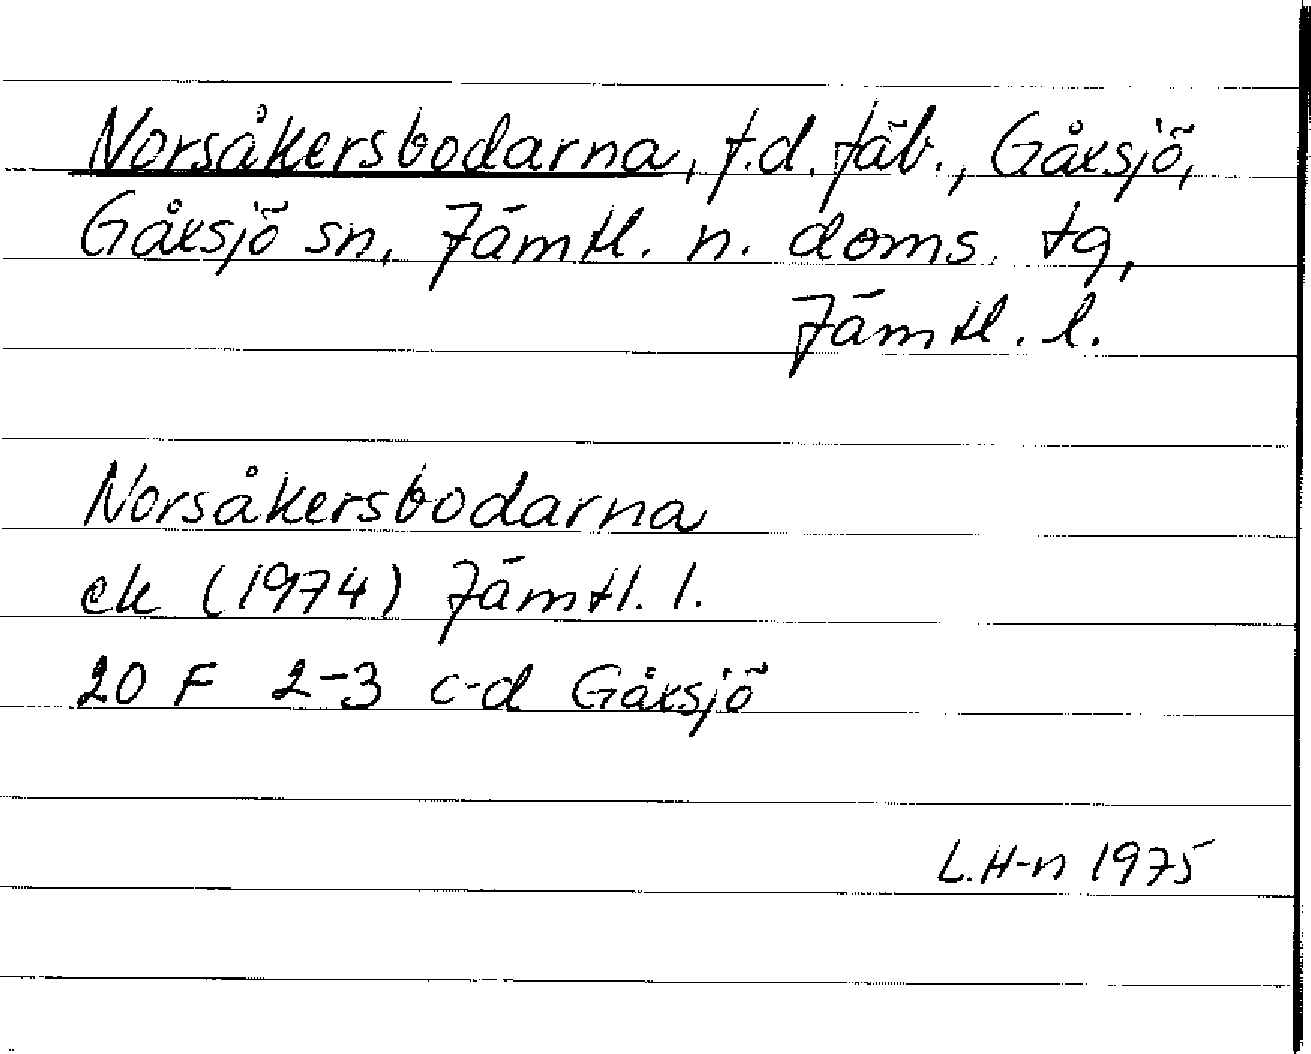 Norsåkersbodarna, f.d. fäb., Gåxsjö,
Gåxsjö sn, Jämtl. n. doms. tg,
Jämtl. l.
Norsåkersbodarna
ek (1974) Jämtl. l.
20 F 2-3 c-d Gåxsjö
L.H-n 1975